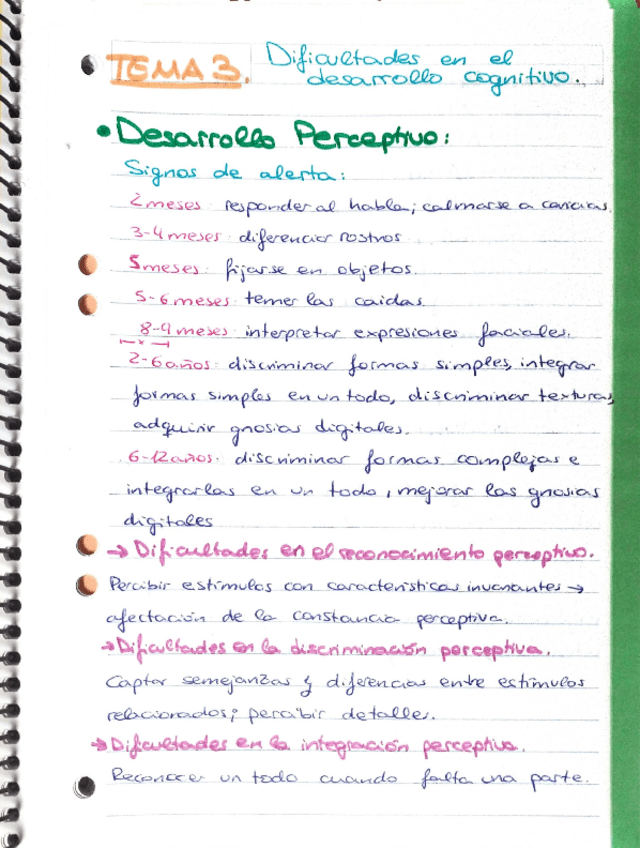 TEMA 3. Dificultades en el
desarrollo cognitivo.
• Desarrollo Perceptivo:
Signos de alerta:
2 meses: responder al habla; calmarse a caricias.
3-4 meses: diferenciar rostros
5 meses: fijarse en objetos.
5-6 meses: temer las caidas.
8-9 meses: interpretar expresiones faciales.
2-6 años: discriminar formas simples, integrar
formas simples en un todo, discriminar texturas,
adquirir gnosias digitales.
6-12 años: discriminar formas complejas e
integrarlas en un todo, mejorar las gnosias
digitales
→ Dificultades en el reconocimiento perceptivo.
Percibir estímulos con características invariantes →
afectación de la constancia perceptiva.
→ Dificultades en la discriminación perceptiva.
Captar semejanzas y diferencias entre estímulos
relacionados; percibir detalles.
→ Dificultades en la integración perceptiva.
Reconocer un todo cuando falta una parte.